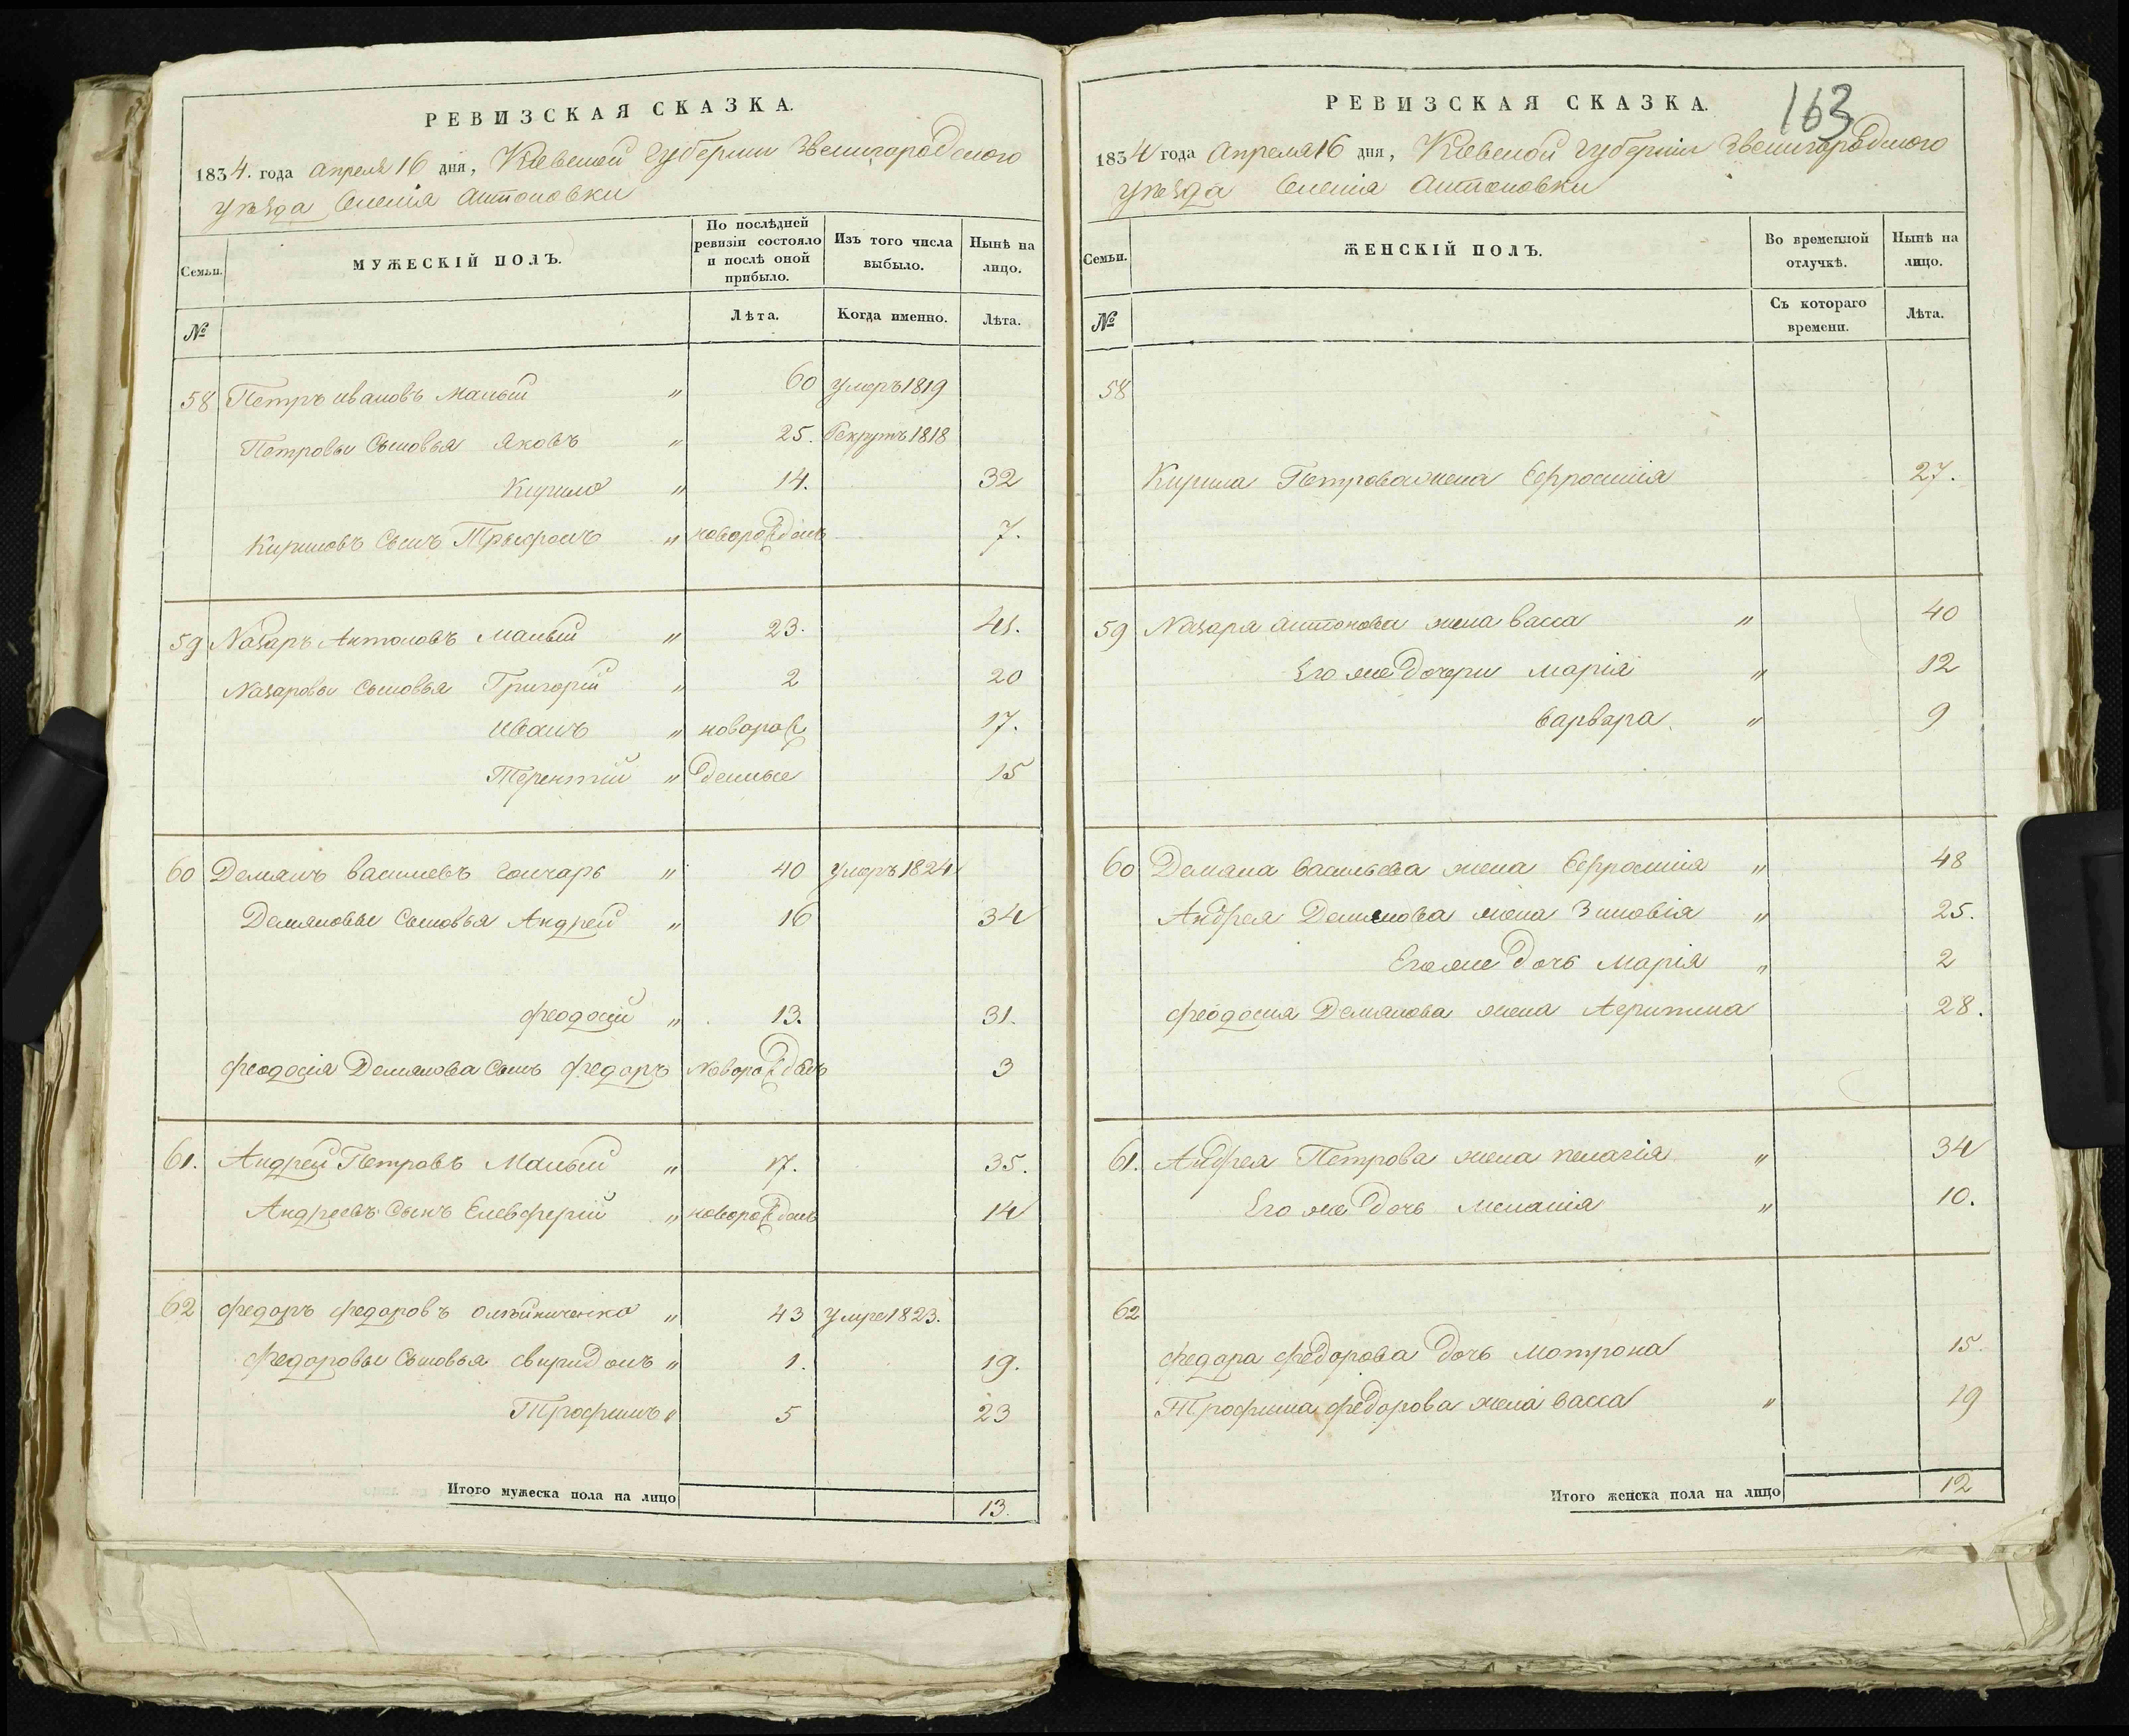 РЕВИЗСКАЯ СКАЗКА.
1834. года Апреля 16 дня, Кіевской Губернии Звенигородского
уѣзда Селенія Антоновки
Семьи.
МУЖЕСКІЙ ПОЛЪ.
По послѣдней ревизіи состояло и послѣ оной прибыло.
Изъ того числа выбыло.
Нынѣ на лицо.
№
Лѣта.
Когда именно.
Лѣта.
58 Петръ ивановъ Малый " 60 умеръ 1819
Петровы Сыновья Яковъ " 25. Рекрутъ 1818
Кирило " 14. 32
Кириловъ Сынъ Трыфонъ " новорожденъ 7.
59 Назаръ Антоновъ Малый " 23. 41.
Назаровы сыновья Григорій " 2 20
иванъ " новорож 17.
Терентій " денные 15
60 Демянъ василевъ гончаръ " 40 умеръ 1824
Демяновы Сыновья Андрей " 16 34
феодосій " 13. 31.
феодосія Демянова Сынъ федоръ новорожденъ 3
61. Андрей Петровъ Малый " 17. 35.
Андреевъ Сынъ Елевферій " новорожденъ 14
62 федоръ федоровъ Олѣйниченко " 43 умре 1823.
федоровы Сыновья свиридонъ " 1. 19.
Трофимъ " 5 23
Итого мужеска пола на лицо 13.
163
РЕВИЗСКАЯ СКАЗКА.
1834 года Апреля 16 дня, Кіевской губерніи Звенигородского
уѣзда Селенія Антоновки
Семьи.
ЖЕНСКІЙ ПОЛЪ.
Во временной отлучкѣ.
Нынѣ на лицо.
№
Съ котораго времени.
Лѣта.
58
Кирила Петрова жена Ефросинія 27.
59 Назара антонова жена васса " 40
Его же Дочери марія " 12
варвара. " 9
60 Демяна васильева жена Ефросинія " 48
Андрея Демянова жена Зиновія " 25.
Его же Дочь Марія " 2
феодосия Демянова жена 28.
61. Андрея Петрова жена пелагія " 34
Его же Дочь меланія " 10.
62
федора федорова Дочь Мотрона 15.
Трофима федорова жена васса " 19
Итого женска пола на лицо 12